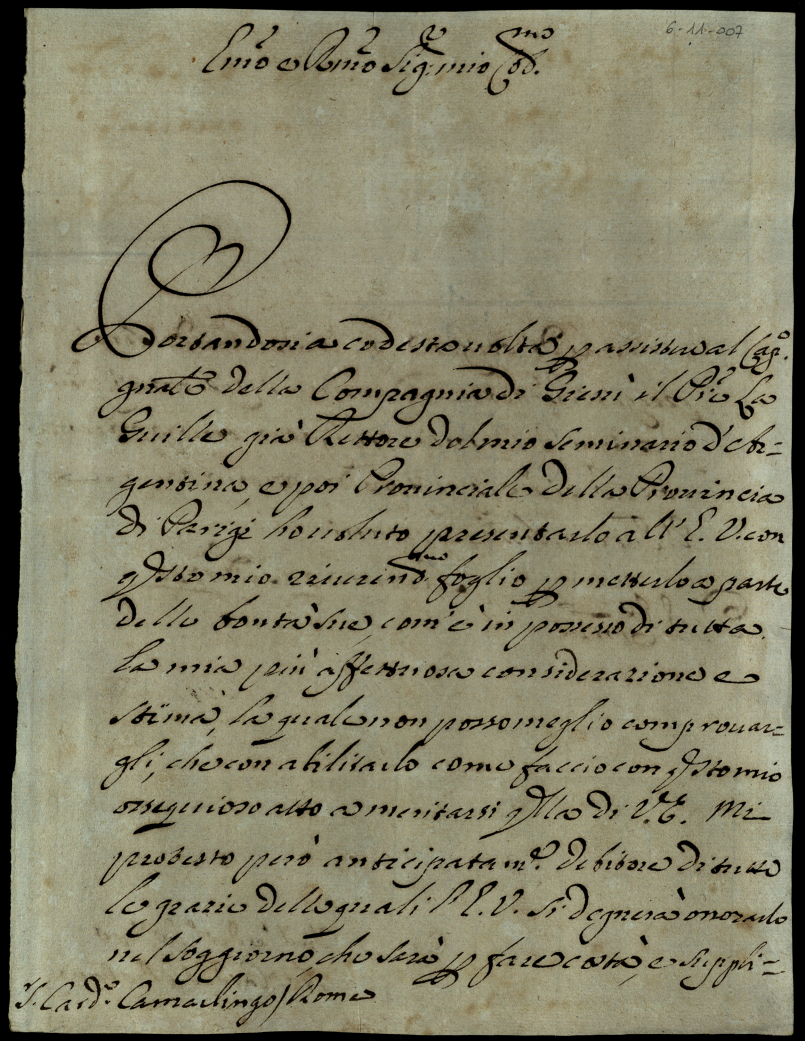 6-11-007
Emõ e Rmõ Sig.r mio Cod.mo
Portandosi a codesta volta p assistere al Cap.o
gnãle della Compagnia di Giesù il Pre La
Guille già Rettore del mio Seminario d'Ar=
gentina, e poi Provinciale della Provincia
di Parigi ho voluto presentarlo all' E. V. con
qsto mio riverend.mo foglio p metterlo a parte
delle bontà sue, com' è in possesso di tutta
la mia più affettuosa considerazione e
stima, la quale non posso meglio comprovar=
gli, che con abilitarlo come faccio con qsto mio
ossequioso atto a meritarsi qlla di V. E. Mi
protesto però anticipatam.e debitore di tutte
le grazie delle quali l' E. V. si degnerà onorarlo
nel soggiorno, che sarà p fare costà, e suppli=
S. Card.e Camarlingo / Roma